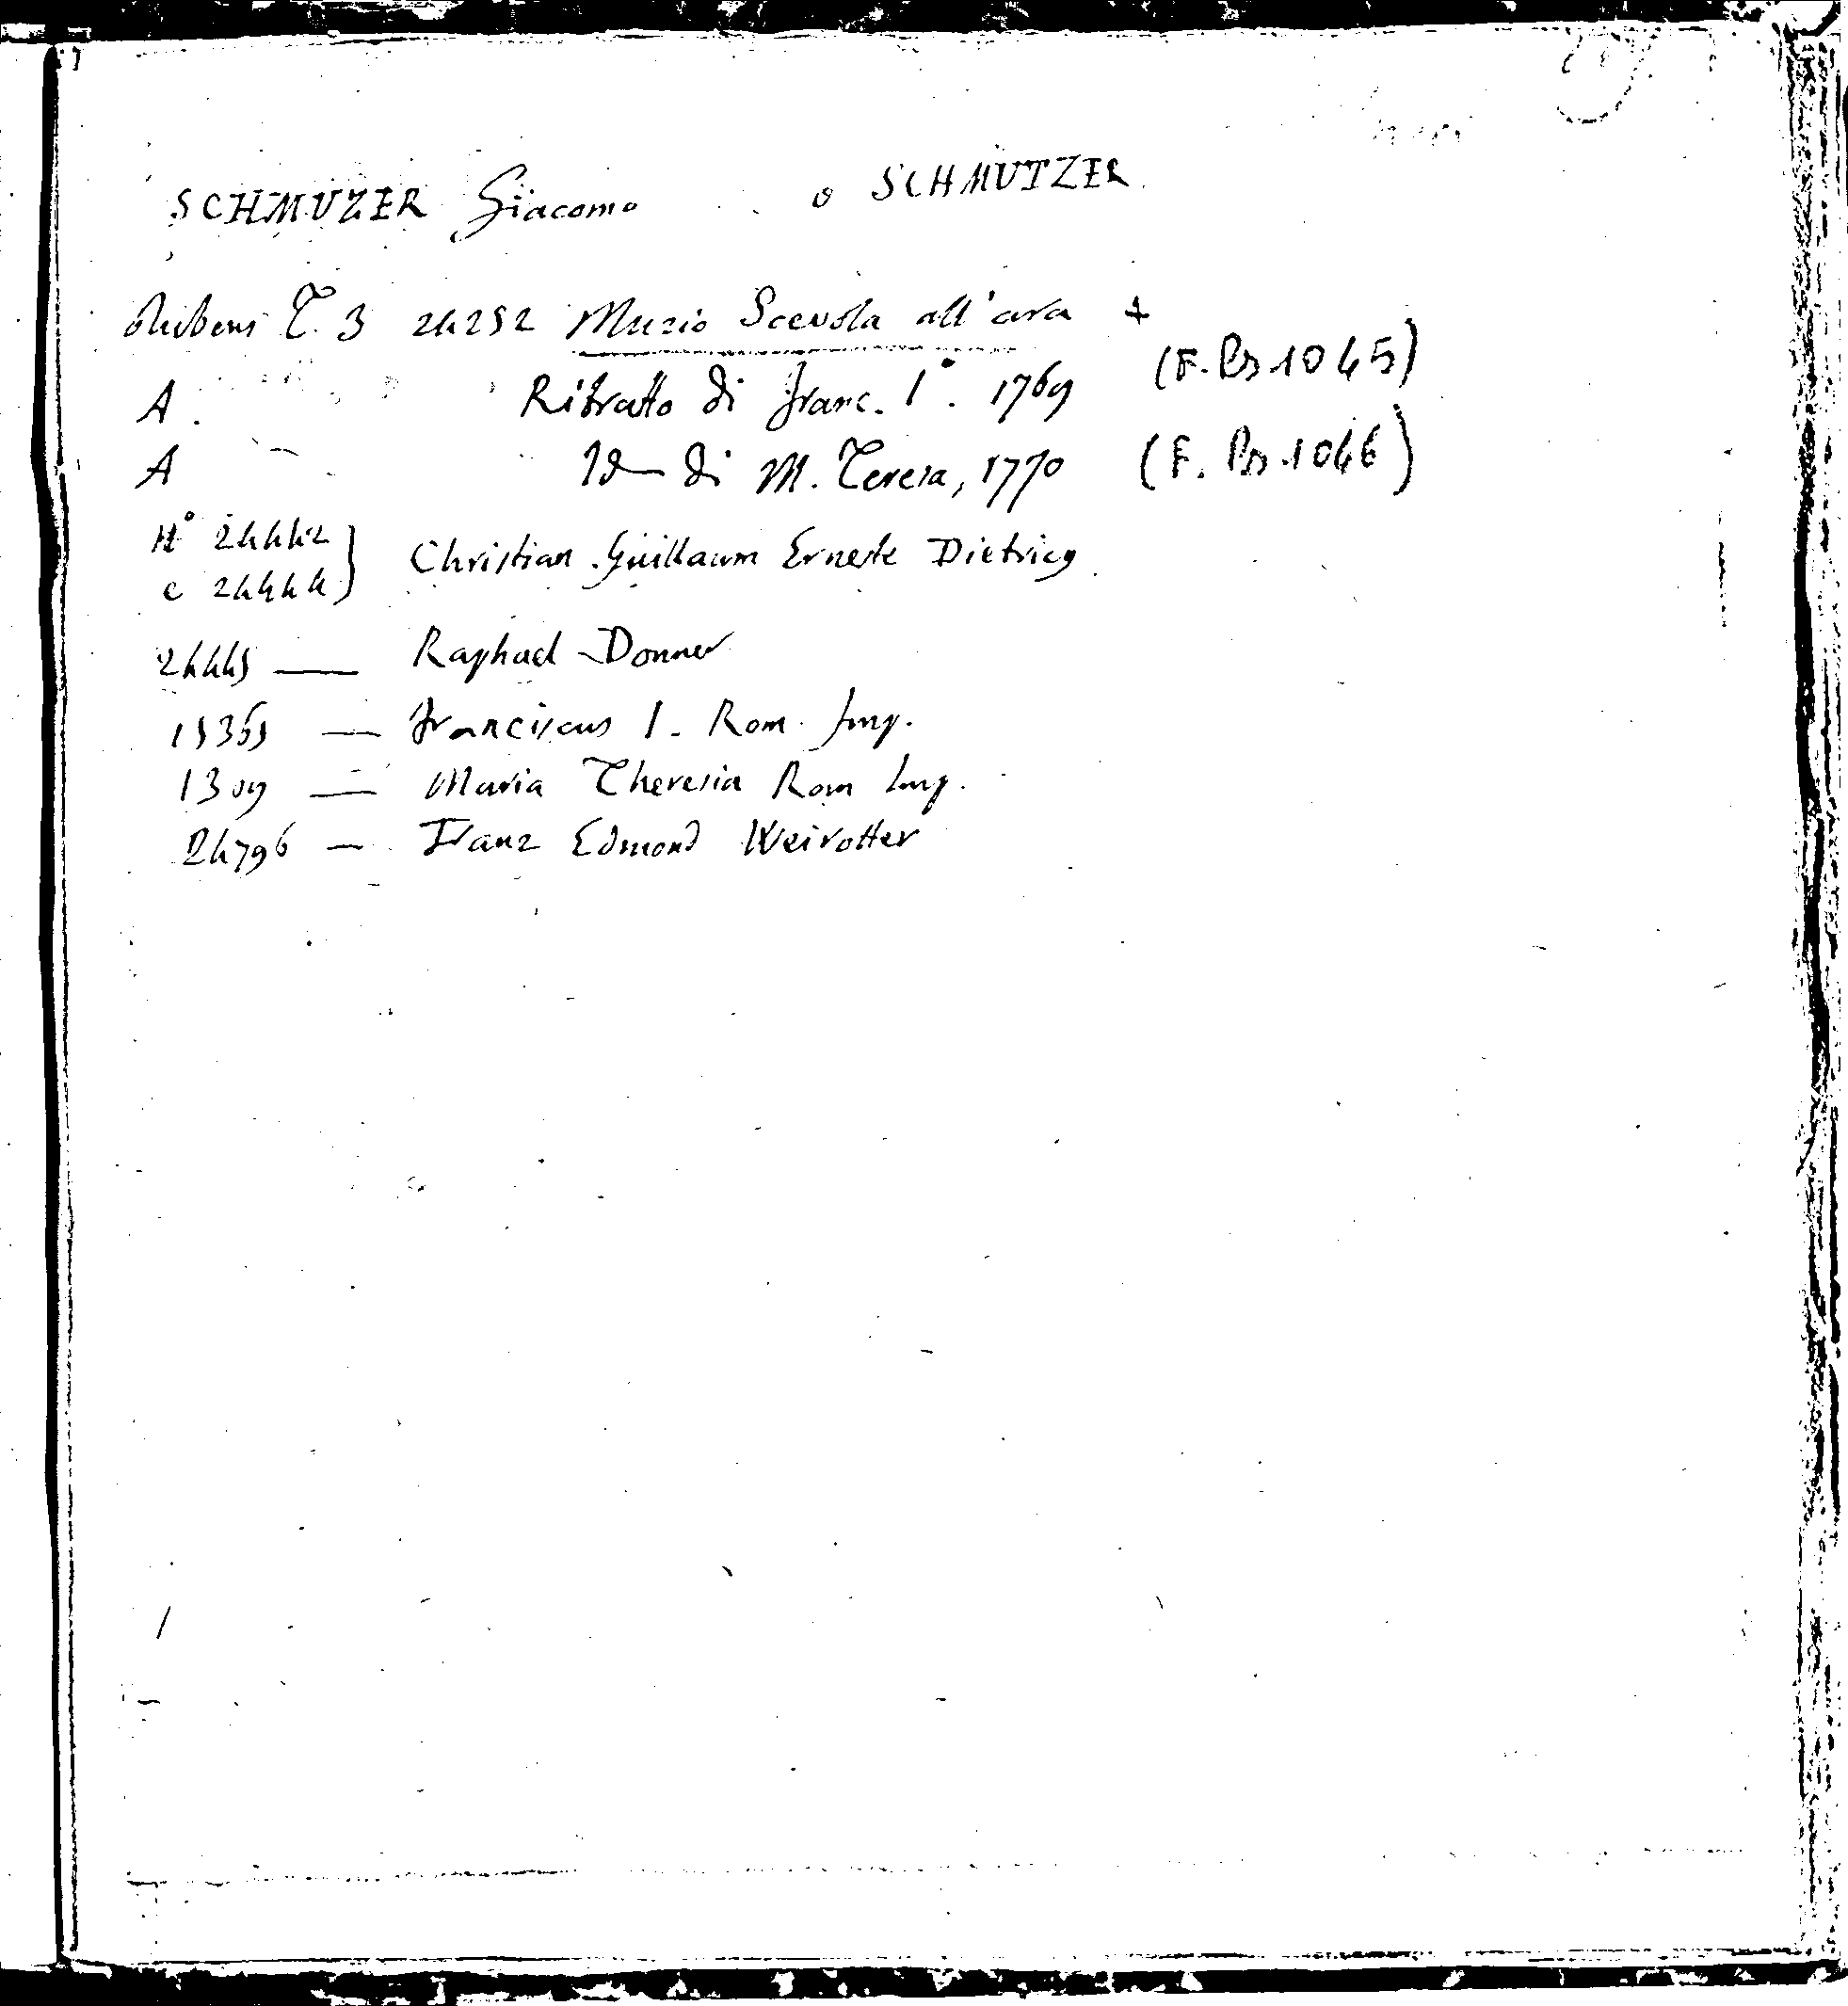 SCHMUZER Giacomo o SCHMUTZER
Rubens T. 3 24252 Muzio Scevola all'ara +
A. Ritratto di Franc. I°. 1769 (F. Pn 1045)
A Id— di M. Teresa, 1770 (F. Pn. 1046)
N° 24442
e 24444 } Christian Guillaum Erneste Dietricy
24445 — Raphael Donner
15365 — Franciscus I. Rom. Imp.
1309 — Maria Theresia Rom Imp.
24796 — Franz Edmond Weirotter